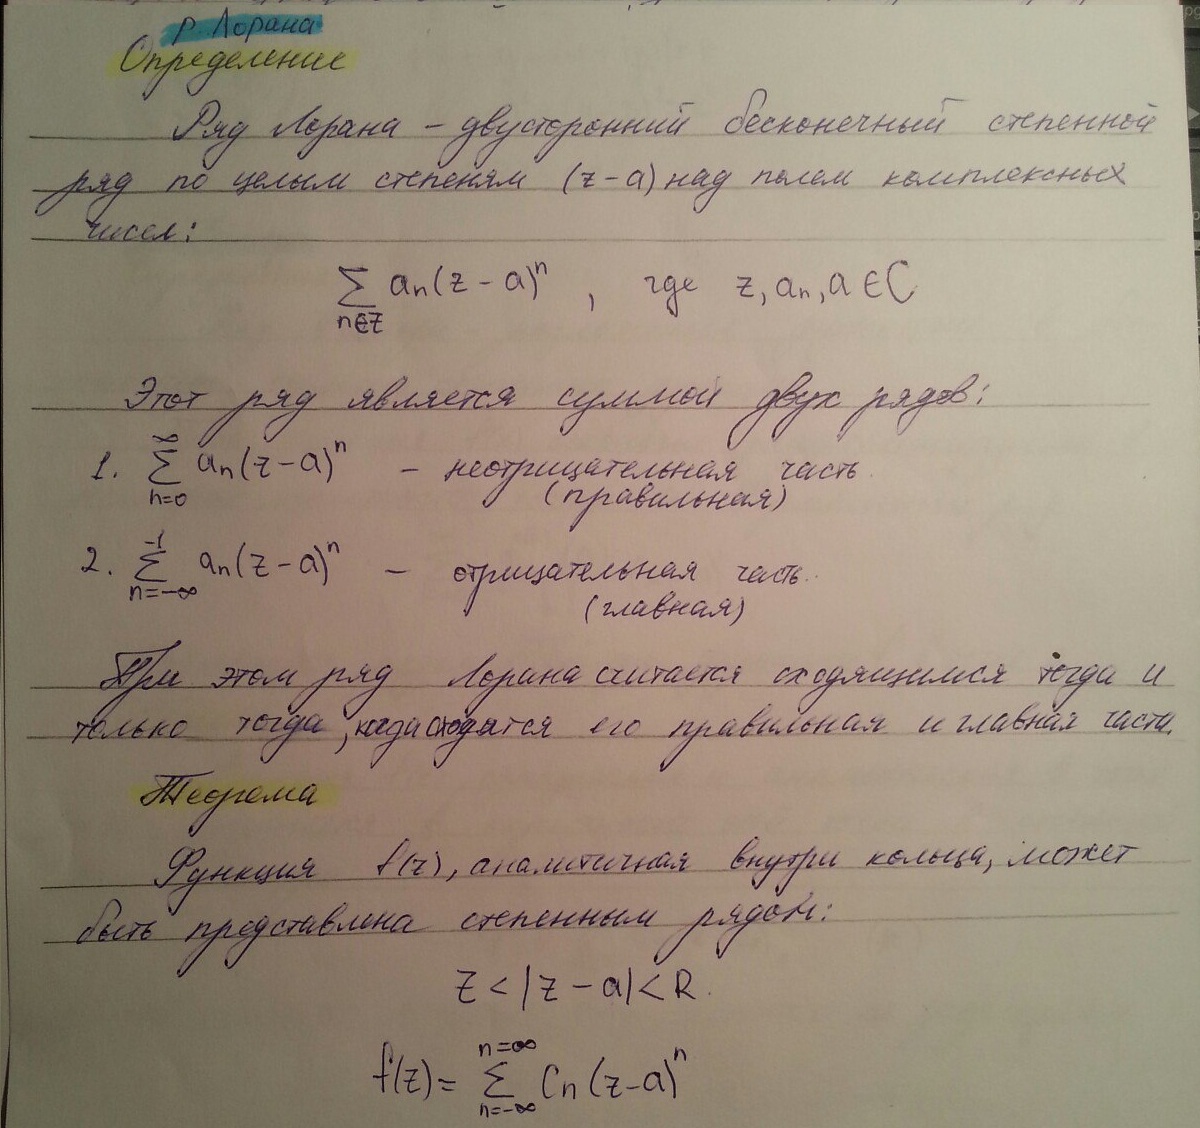 р. Лорана
Определение
Ряд Лорана – двусторонний бесконечный степенной
ряд по целым степеням (z-a) над полем комплексных
чисел:
∑ aₙ(z-a)ⁿ, где z, aₙ, a ∈ C
n∈Z
Этот ряд является суммой двух рядов:
1. ∑_{n=0}^{∞} aₙ(z-a)ⁿ – неотрицательная часть.
(правильная)
2. ∑_{n=-∞}^{-1} aₙ(z-a)ⁿ – отрицательная часть.
(главная)
При этом ряд Лорана считается сходящимся тогда и
только тогда, когда сходятся его правильная и главная части.
Теорема
Функция f(z), аналитичная внутри кольца, может
быть представлена степенным рядом:
z < |z-a| < R.
f(z) = ∑_{n=-∞}^{n=∞} Cₙ(z-a)ⁿ